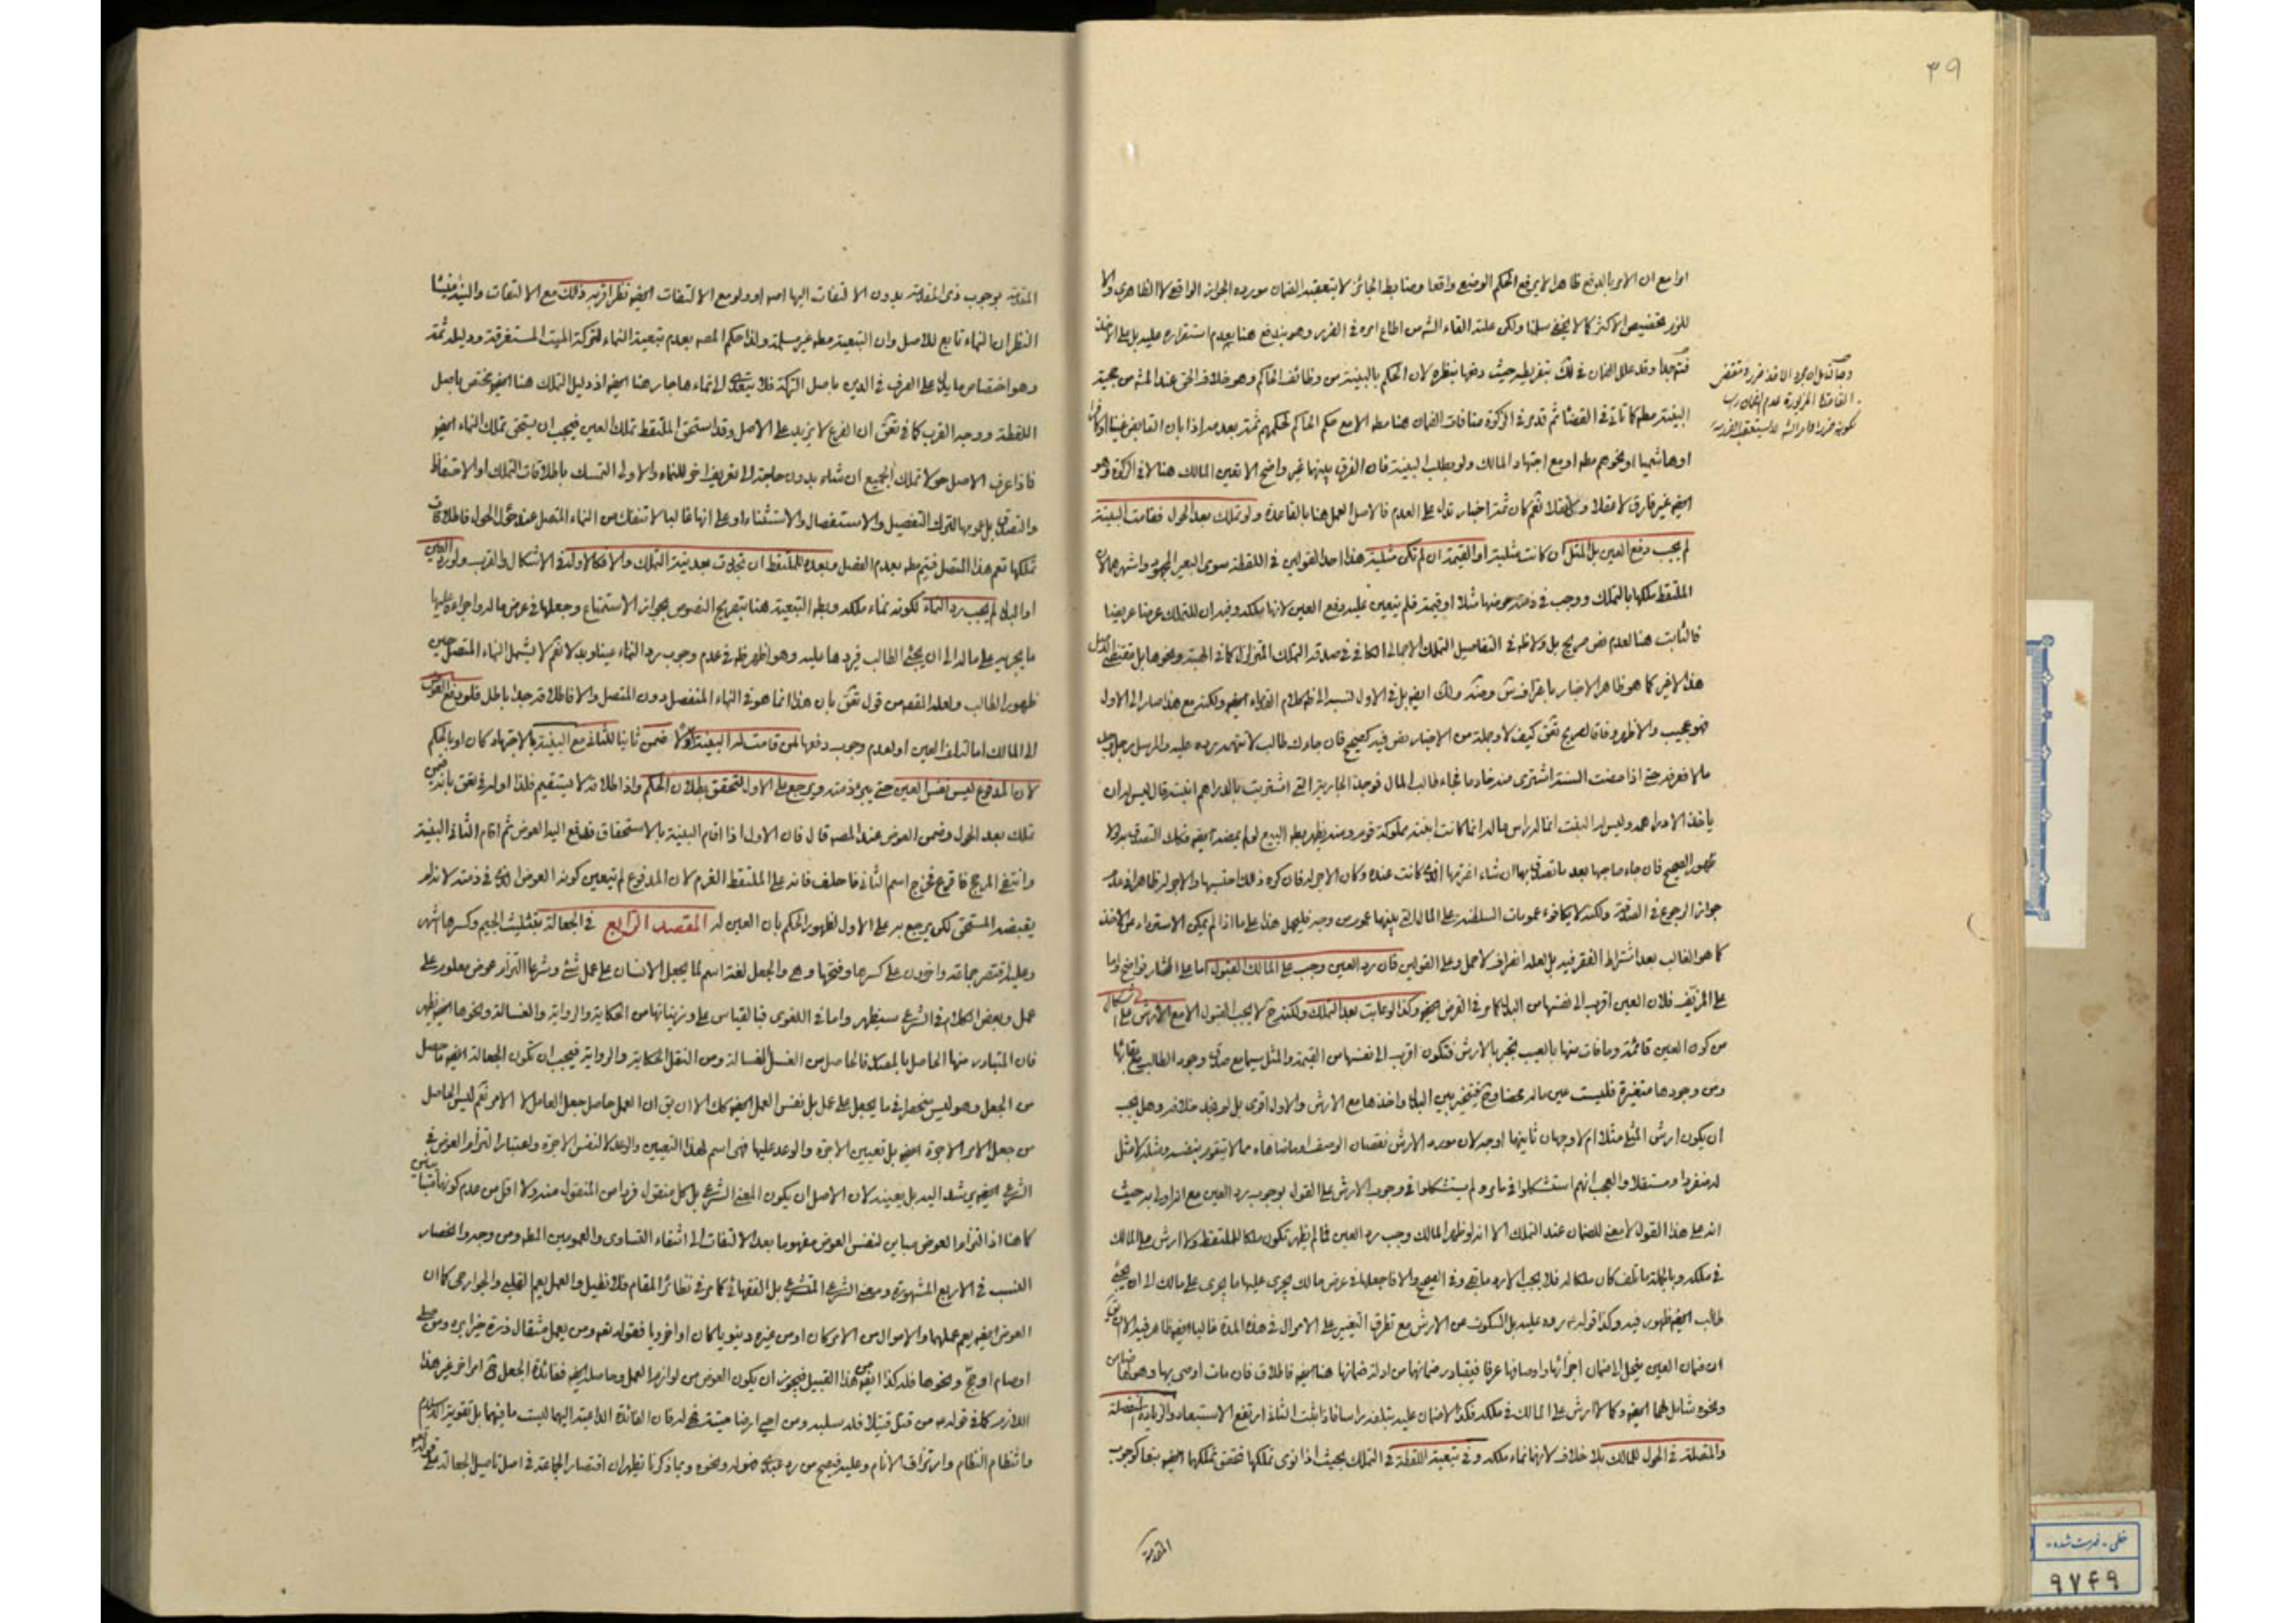 ٣٩
او امع ان الامر بالدفع ظاهرا لا يرفع الحكم الوضعي واقعا وضابط الجائز لا يتعقبه الضمان مورده الجواز الواقعي لا الظاهري والا
للزم تخصيص الاكثر كما لا يخفى سلمنا ولكن علية القاء الشه من اطاع امره في الضرر وهو يندفع هنا بعدم استقراره عليه بل على الاخذ
فتوجه وقد علل الضمان في لك بتفريطه حيث دفعها بنظره لان الحكم بالبينة من وظائف الحاكم وهو خلاف الحق عند المشه من حجية
البينة مطه كما تاتى في القضا ثم قدمر في الزكوة منافات الضمان هنا مطه الا مع حكم الحاكم لحكمهم ثمة بعدمه اذا بان القابض غنيا او كافرا
او هاشميا او نحوهم مطه او مع اجتهاد المالك ولو بطلب البينة فان الفرق بينها غير واضح الا تعين المالك هنا لا في الزكوة وهو
ايضه غير فارق لا عقلا ولا نقلا نعم كان ثمة اخبار تدل على العدم فالاصل العمل هنا بالقاعدة ولو تملك بعد الحول فقامت البينة
لم يجب دفع العين بل المثل ان كانت مثلية او القيمة ان لم تكن مثلية هذا احد القولين في اللقطة سوى البعير المجهود واشهرهما لان
الملتقط ملكها بالتملك ووجب في ذمته عوضها مثلا او قيمة فلم يتعين عليه دفع العين لانها ملكه وفيه ان للتملك عرضا عريضا
فالثابت هنا لعدم نص صريح بل ولا ظه في التفاصيل التملك الاجمالى الكافى في صدقه التملك المتزلزل كما في الهبة ونحوها بل مقتضى الاصل
هذا الاخير كما هو ظاهر الاخبار باعتراف ولك ايضه بل في الاول نسبه الى ظه كلام القدماء ايضه ولكنه مع هذا صار الى الاول
فهو عجيب والاظهر وفاقا لصريح تقى كيف لا وجملة من الاخبار نص فيه كصحيح فان جاءك طالب لا تتهمه رده عليه والمرسل رجل وجد
مالا فعرفه حتى اذا مضت السنة اشترى منه خادما فجاء طالب المال فوجد الجارية التى اشتريت بالدراهم ابنته قال ليس له ان
ياخذ الا دراهمه وليس له البنت انما له راس ماله انما كانت ابنته مملوكة قوم ومنه يظهر بطه البيع لو لم يمضه ايضه فكك التصدق بها الا
ظهور الصحيح فان جاء صاحبها بعد ما تصدق بها ان شاء اغترمها الذى كانت عنده وكان الاجر له فان كره ذلك احتسبها والاجر له ظاهر في عدم
جواز الرجوع في الصدقة ولكنه لا يكافوء عمومات السلطنة على المال التى بينهما عموم من وجه فليحمل هذا على ما اذا لم يمكن الاسترداد من الاخذ
كما هو الغالب بعد اشتراط الفقر فيه بل لعله انصراف لا حمل وعلى القولين فان رد العين وجب على المالك القبول اما على المختار فواضح واما
على المزيف فلان العين اقرب الى نفسها من البدل كما مر في القرض ايضه وكذا لو عابت بعد التملك ولكنه ح لا يجب القبول الا مع الارش على اشكال
من كون العين قائمة وما فات منها بالعيب يجبر بالارش فتكون اقرب الى نفسها من القيمة والمثل سيما مع صدق وجود الطالب مع بقائها
ومن وجودها متغيرة فليست عين ماله محضا وح فيتخير بين البدل واخذها مع الارش والاول اقوى بل لم نجد خلافه وهل يجب
ان يكون ارش المثلى مثلا ام لا وجهان ثانيهما اوجه لان مورد الارش نقصان الوصف وما ضاهاه مما لا يتقوم بنفسه ومثله لا مثل
له منفردا ومستقلا والعجب انهم استشكلوا في مامر ولم يستشكلوا في وجوب الارش على القول بوجوب رد العين مع انه اولى به حيث
انه على هذا القول لا معنى للضمان عند التملك الا انه لو ظهر المالك وجب رد العين فما لم يظهر تكون ملكا للملتقط ولا ارش على المالك
في ملكه وبالجملة ما تلف كان ملكا له فلا يجب الا رد ما بقى وفى الصحيح والا فاجعلها في عرض مالك يجرى عليها ما يجرى على مالك الى ان يجئ
طالب ايضه ظهور فيه وكذا قوله ع رده عليه بل السكوت عن الارش مع تطرق التغير على الاموال في هذه المدة غالبا ايضه ظاهر فيه الا ان يق
ان ضمان العين ينحل الى ضمان اجزائها واوصافها عرفا فيتبادر ضمانها من ادلة ضمانها هنا ايضه فاطلاق فان مات اوصى بها وهو لها ضامن
ونحوه شامل لهما ايضه وكما لا ارش على المالك في ملكه فكك لا ضمان عليه بتلفه راسا فاذا ثبت الثانى ارتفع الاستبعاد والزيادة المنفصلة
والمتصلة في الحول للمالك بلا خلاف لانهما نماء ملكه وفى تبعية اللقطة في التملك بحيث اذا نوى تملكها تحقق تملكها ايضه تبعا كوجوب
المقدمة
المقدمة بوجوب ذى المقدمة بدون الالتفات اليها امه او ولو مع الالتفات ايضه نظر اقربه ذلك مع الالتفات والنية ومنشأ
النظر ان النماء تابع للاصل وان التبعية مطه غير مسلمة ولذا حكم المصه بعدم تبعية النماء لتركة الميت المستغرقة ودليله ثمة
وهو اختصاص ما يدل على الصرف في الدين باصل التركة فلا يتعدى الى نماءها جار هنا ايضه اذ دليل التملك هنا ايضه يختص باصل
اللقطة ووجه القرب كما في تقى ان الفرع لا يزيد على الاصل وقد استحق الملتقط تملك العين فيجب ان يستحق تملك النماء ايضه
فاذا عرف الاصل حولا تملك الجميع ان شاء بدون حاجة الى تعريف اخر للنماء والاولى التمسك باطلاقات التملك او الاحتفاظ
والتصدق بل عمومها لترك التفصيل والاستفصال والاستثناء او على انها غالبا لا تنفك من النماء المتصل عند حؤل الحول فاطلاقات
تملكها تعم هذا المتصل فيتم مطه بعدم الفصل وبعده للملتقط ان تجددت بعد نية التملك والا فكالاولى في الاشكال والقرب ولو رد العين
او البدل لم يجب رد النماء لكونه نماء ملكه وبطه التبعية هنا بتصريح النصوص بجواز الاستمتاع وجعلها في عرض ماله واجراءه عليها
ما يجريه على ماله الى ان يجئ الطالب فيردها عليه وهو اظهر ظه في عدم وجوب رد النماء عينا وبدلا نعم لا يشمل النماء المتصل حين
ظهور الطالب ولعله المقصه من قول تقى بان هذا انما هو في النماء المنفصل دون المتصل والا فاطلاقه جدا باطل فلو دفع العوض
الى المالك اما لتلف العين او لعدم وجوب دفعها لمن قامت له البينة اولا ضمن ثانيا للثانى مع البينة بالاجتهاد كان او بالحكم
لان المدفوع ليس نفس العين حتى يبرء ذمته ويرجع على الاول لتحقق بطلان الحكم واذ اطلاقه لا يستقيم فلذا اوله في تقى بانه فيمن
تملك بعد الحول وضمن العوض عند المصه قال فان الاول اذا اقام البينة بالاستحقاق فدفع اليه العوض ثم اقام الثانى البينة
وانتفى المرجح فاقرع فخرج اسم الثانى فاحلف فانه على الملتقط الغرم لان المدفوع لم يتعين كونه العوض الذى في ذمته لانه لم
يقبضه المستحق لكن يرجع به على الاول لظهور الحكم بان العين له المقصد الرابع في الجعالة بتثليث الجيم وكسرها اشهر
وعليه اقتصر جماعة واخرون على كسرها وفتحها وهى والجعل لغة اسم لما يجعل الانسان على عمل شئ وشرعا التزام عوض معلوم على
عمل وبعض الكلام في الشرع سيظهر واما في اللغوى فبالقياس على وزينانها من الحكاية والرواية والغسالة ونحوها ايضه يظهر
فان المتبادر منها الحاصل بالمصدر فالحاصل من الغسل الغسالة ومن النقل الحكاية والرواية فيجب ان تكون الجعالة ايضه حاصل
من الجعل وهو ليس منحصرا في ما يجعل على عمل بل نفس العمل ايضه كك الا ان يق ان العمل حاصل جعل العامل لا الامر نعم ليس الحاصل
من جعل الامر الاجرة ايضه بل تعيين الاجرة والوعد عليها فهى اسم لهذا التعيين والوعد لا لنفس الاجرة واعتبار التزام العوض في
الشرعى ايضه يرشد اليه بل يعينه لان الاصل ان يكون المعنى الشرعى بل كل منقول فردا من المنقول منه ولا اقل من عدم كونه مباينا
كما هنا اذ التزام العوض مباين لنفس العوض مفهوما بعد الالتفات الى انتفاء التساوى والعمومين المطه ومن وجه وانحصار
النسب في الاربع المشهورة ومعنى الشرعى المتشرعى بل الفقهائى كما مر في نظائر المقام فلا نطيل والعمل يعم القلبى والجوارحى كما ان
العوض ايضه يعم عملهما والاموال من الامر كان او من غيره دينويا كان او اخرويا فقوله تعه ومن يعمل مثقال ذرة خيرا يره ومن صلى
او صام او حج ونحوها فله كذا ايضه من هذا القبيل فيجوز ان يكون العوض من لوازم العمل وحاصله ايضه ففائدة الجعل ح امر اخر غير هذا
اللازم كما في قوله ص من قتل قتيلا فله سلبه ومن احيى ارضا ميتة فهى له فان الفائدة الداعية اليهما ليست ما فيهما بل تقوية الاسلام
وانتظام النظام وارتزاق الانام وعليه فيصح من رد عبدى فهو له ونحوه وبما ذكرنا تظهر ان اقتصار الجماعة في اصل تاصيل الجعالة على قوله تعه
خطى - فهرست شده -
٩٧۴٩